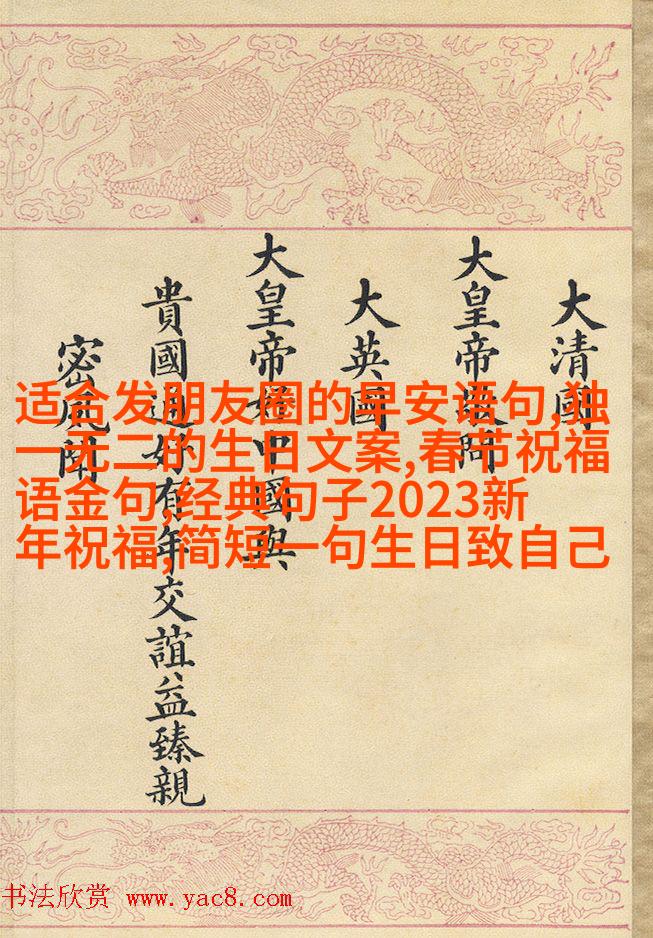 大清國
大皇帝敬問
大英國
大皇帝好中國與
貴國通好有年交誼益臻親
密夙聞
适合发朋友圈的早安语句,独
一无二的生日文案,春节祝福
语金句,经典句子2023新
年祝福,简短一句生日致自己
书法欣赏 www.yac8.com